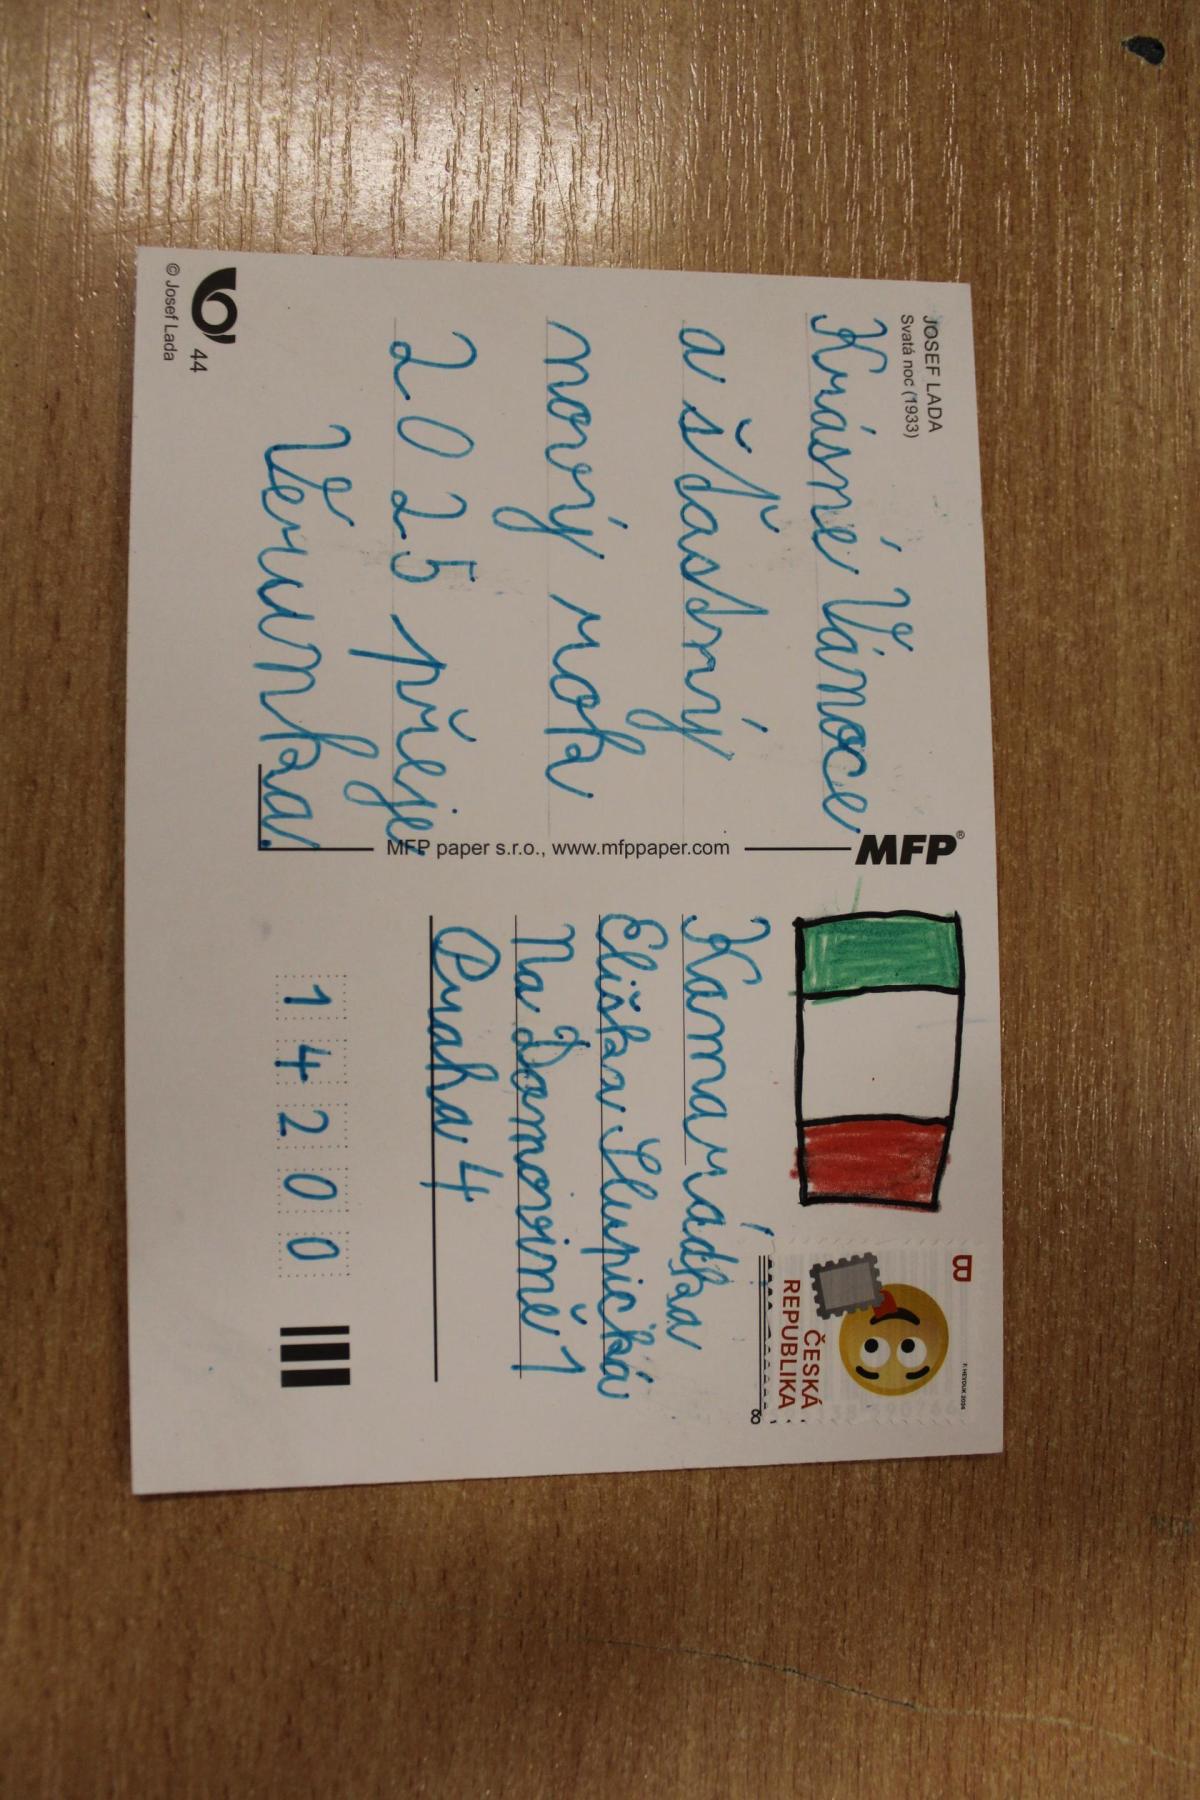 JOSEF LADA
Svatá noc (1933)
Krásné Vánoce
a šťastný
nový rok
2025 přeje
Věrunka
44
© Josef Lada
MFP®
MFP paper s.r.o., www.mfppaper.com
B
ČESKÁ
REPUBLIKA
Kamarádka
Eliška Slupická
Na Domovině 1
Praha 4
14200